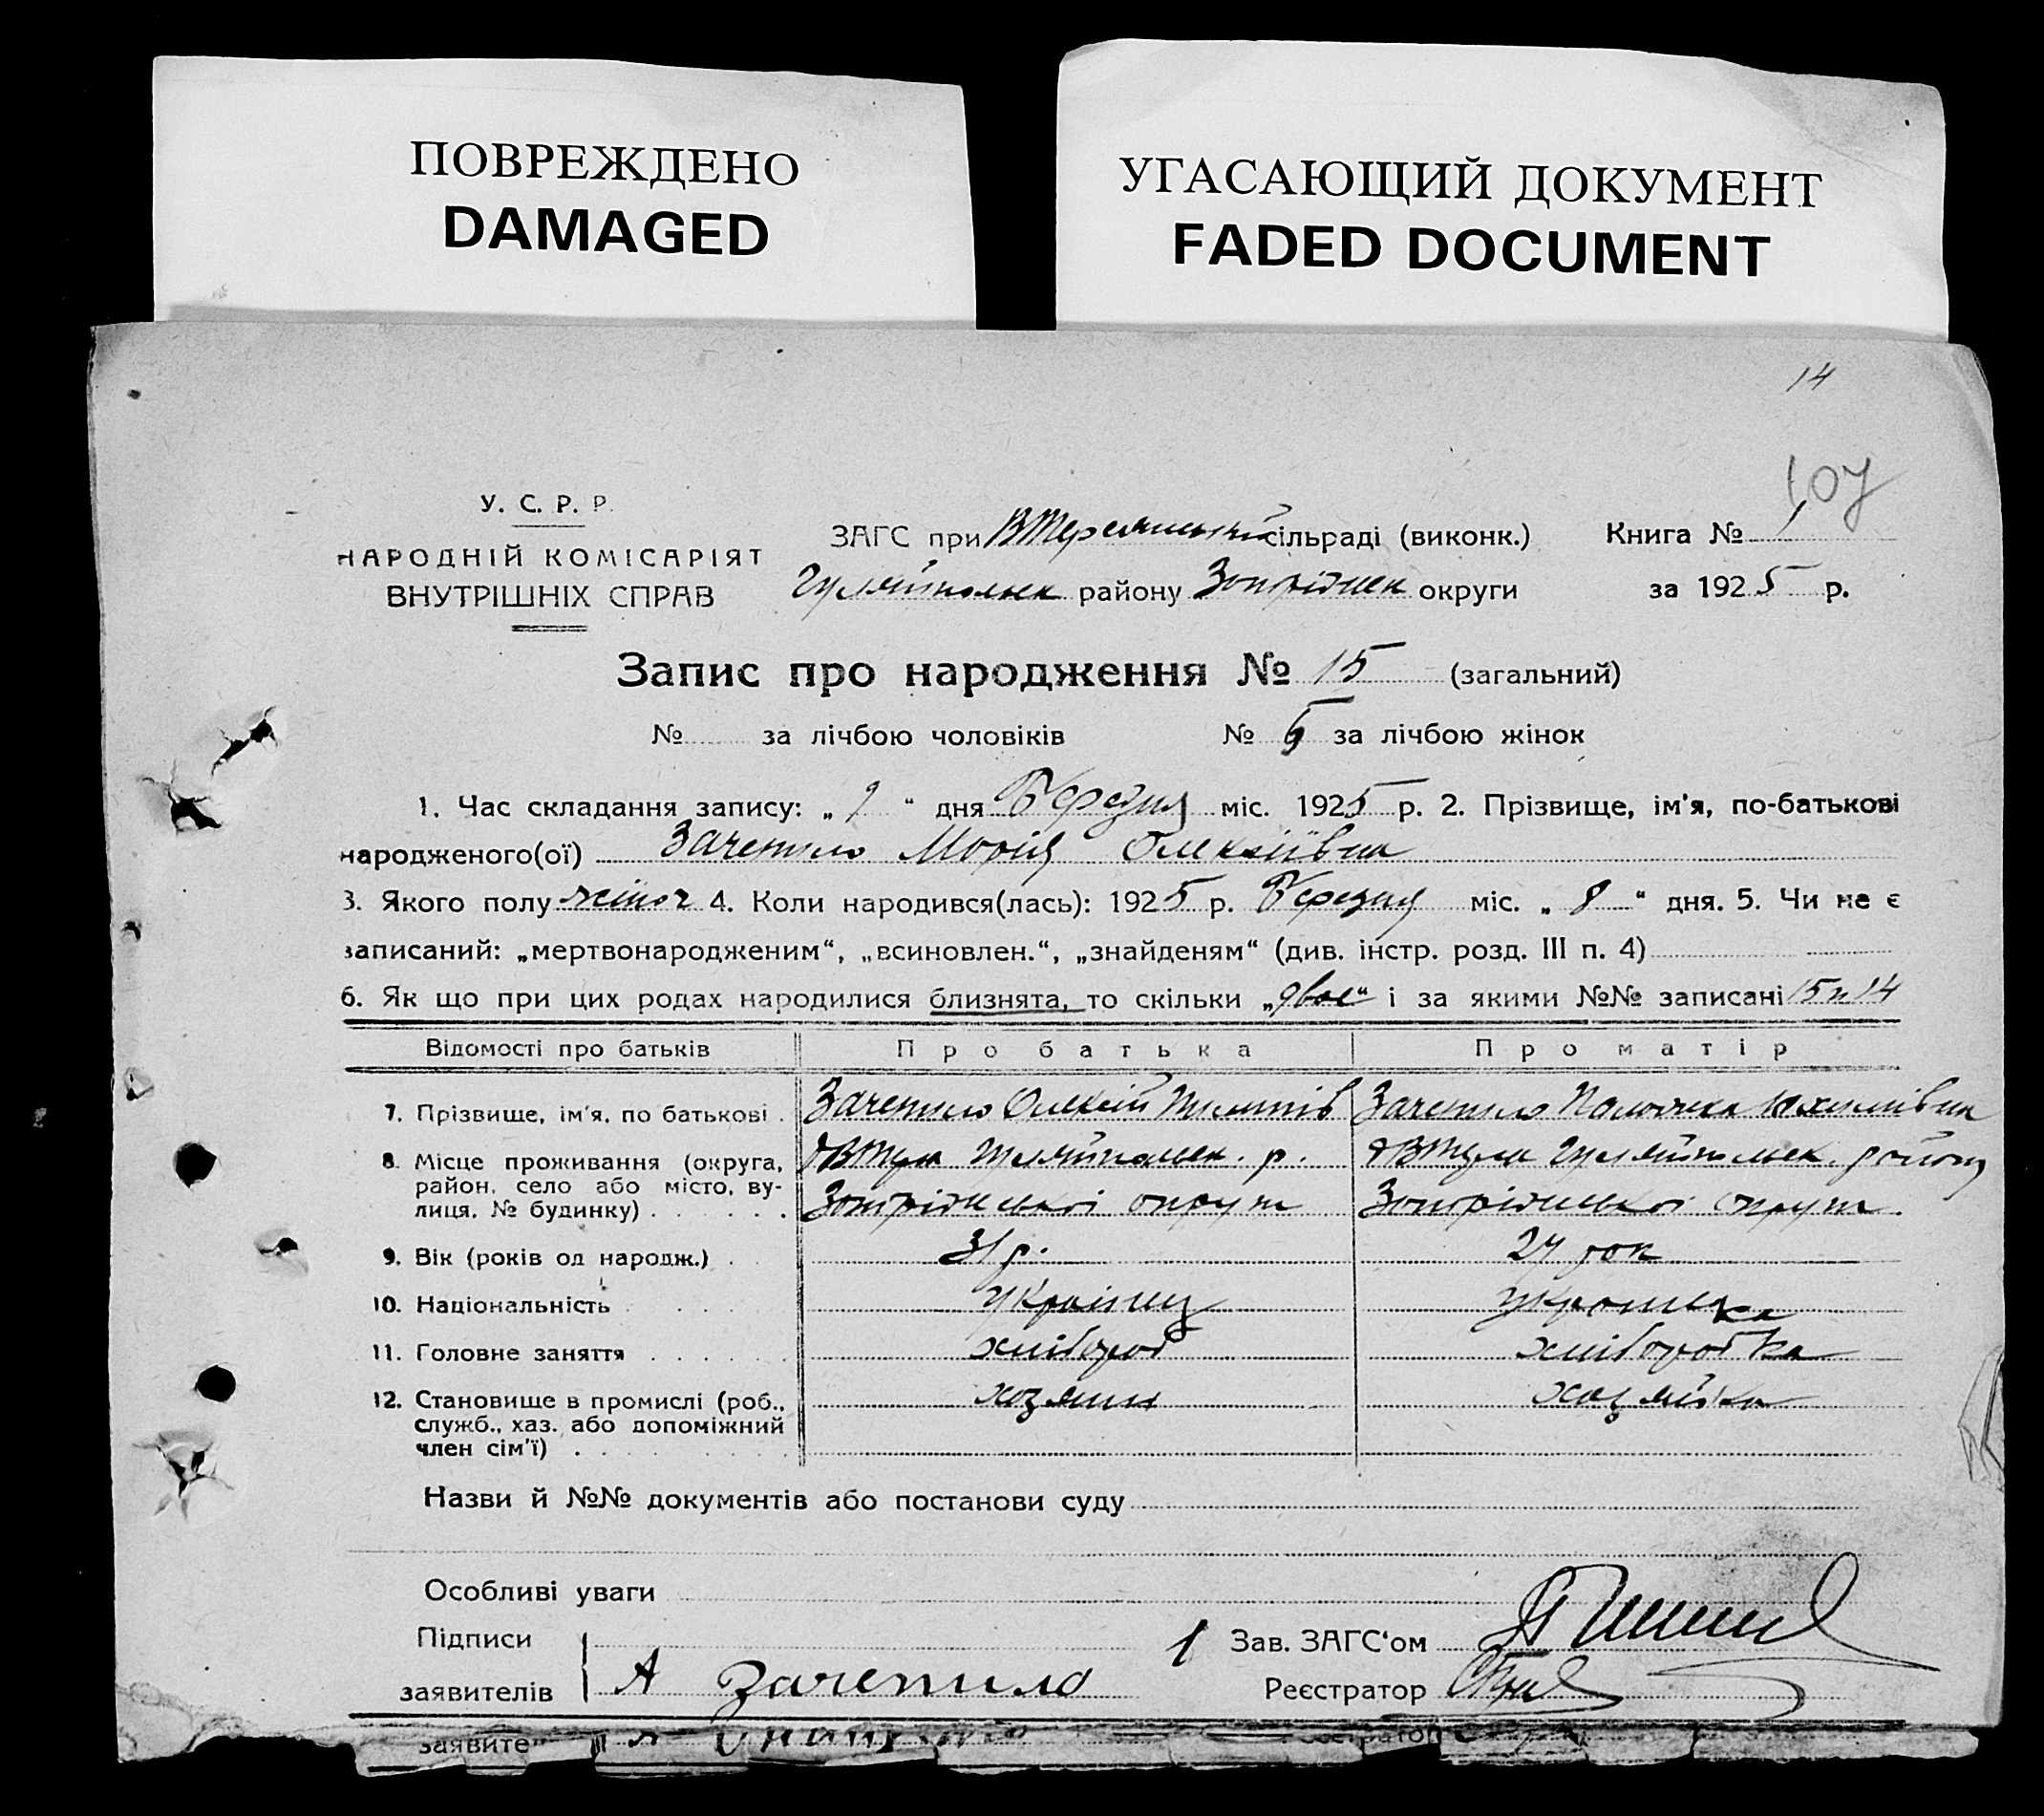 ПОВРЕЖДЕНО
DAMAGED
УГАСАЮЩИЙ ДОКУМЕНТ
FADED DOCUMENT
14
107
У. С. Р. Р.
НАРОДНІЙ КОМІСАРІЯТ
ВНУТРІШНІХ СПРАВ
ЗАГС при сільраді (виконк.) Книга № 1
Гуляйпольск району Запоріжск округи за 1925 р.
Запис про народження № 15 (загальний)
№ за лічбою чоловіків № 5 за лічбою жінок
1. Час складання запису: „ 9 “ дня Березня міс. 1925 р. 2. Прізвище, ім'я, по-батькові
народженого(ої) Зачепило Марія Олексіївна
3. Якого полу жіноч 4. Коли народився(лась): 1925 р. Березня міс. „ 8 “ дня. 5. Чи не є
записаний: „мертвонародженим“, „всиновлен.“, „знайденям“ (див. інстр. розд. III п. 4)
6. Як що при цих родах народилися близнята, то скільки „двое“ і за якими №№ записані 15 и 14
Відомості про батьків Про батька Про матір
7. Прізвище, ім'я, по батькові . Зачепило Олексій Пилипів Зачепило Палажка Юхимівна
8. Місце проживання (округа, Гуляйпольск. р. Гуляйпольск. району
район, село або місто, ву-
лиця, № будинку) . . . . . . Запоріжської округи Запоріжської округи.
9. Вік (років од народж.) . . 31 р. 27 рок
10. Національність . . . . українец украинка
11. Головне заняття . . . . . . хлібороб хліборобка
12. Становище в промислі (роб., хозяин хазяйка
служб., хаз. або допоміжний
член сім'ї) . . . . . . .
Назви й №№ документів або постанови суду
Особливі уваги
Підписи Зав. ЗАГС‘ом
заявителів А Зачепило Реєстратор
заявите